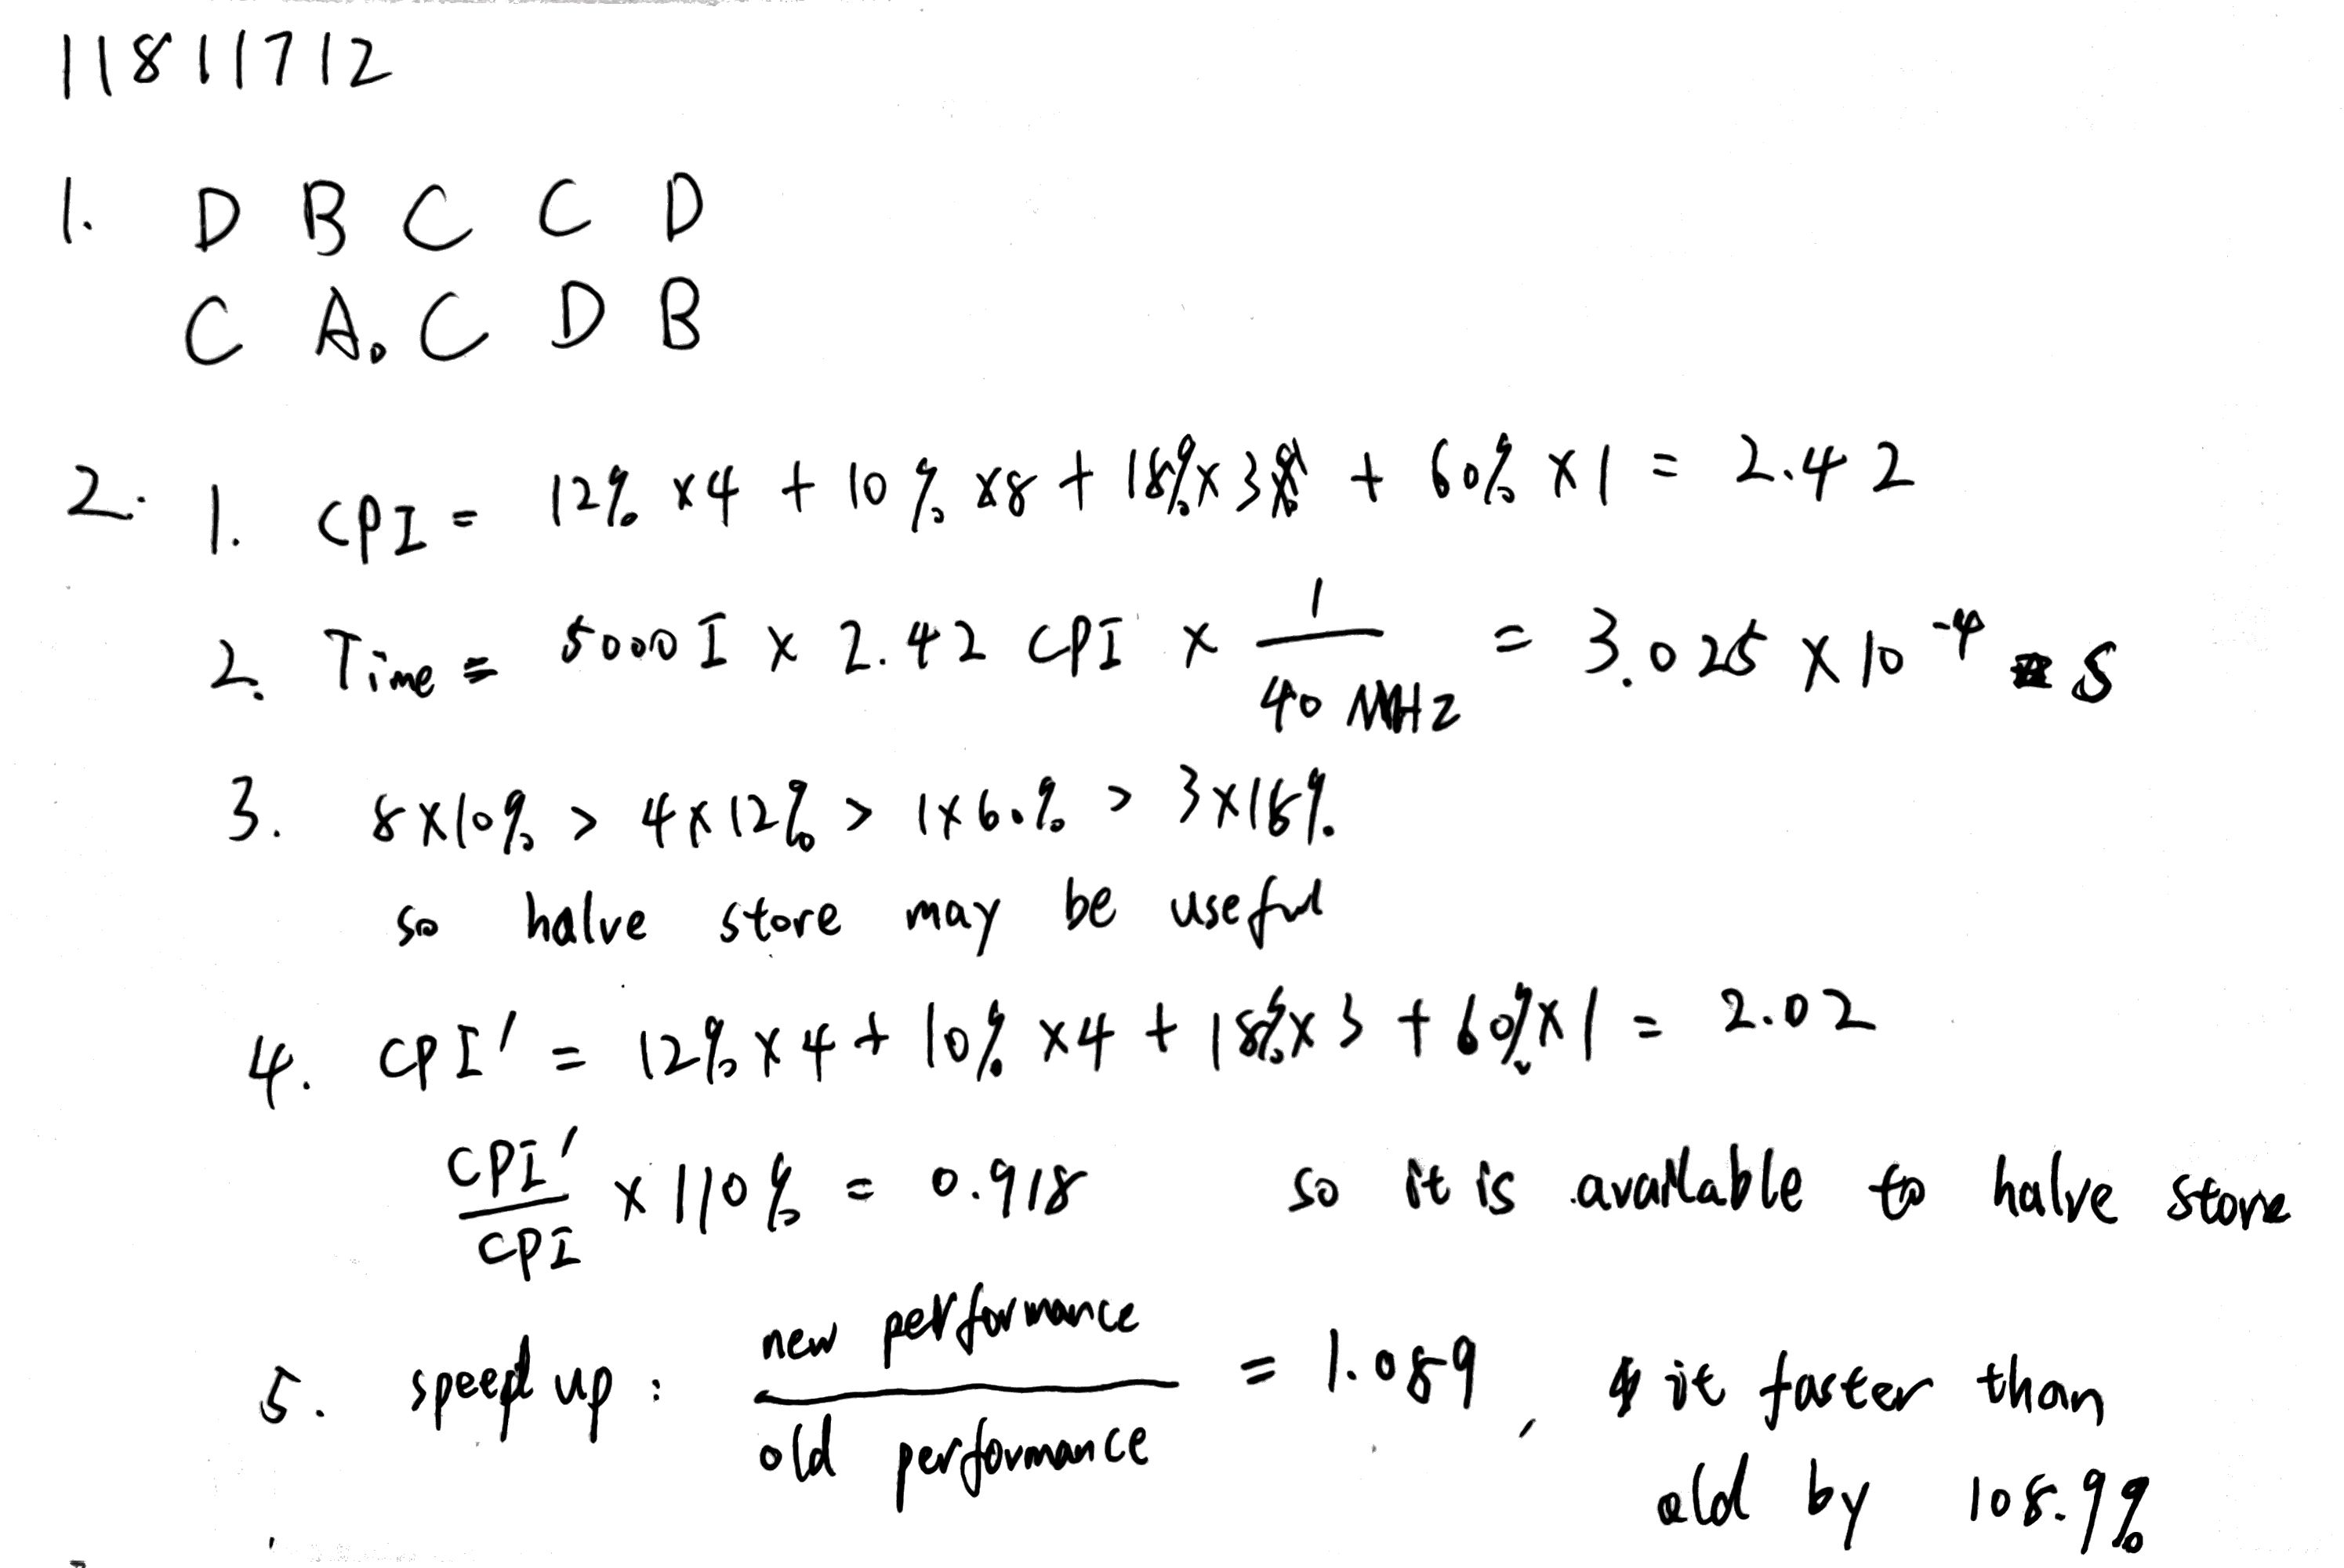 11811712
1. D B C C D
C A. C D B
2. 1. CPI = 12% ×4 + 10% ×8 + 18%×3 + 60% ×1 = 2.42
2. Time = 5000 I × 2.42 CPI × 1/40 MHz = 3.025 × 10^-4 s
3. 8×10% > 4×12% > 1×60% > 3×18%
so halve store may be useful
4. CPI' = 12%×4 + 10% ×4 + 18%×3 + 60%×1 = 2.02
CPI'/CPI × 110% = 0.918 so it is available to halve store
5. speed up : new performance/old performance = 1.089, it faster than
old by 108.9%